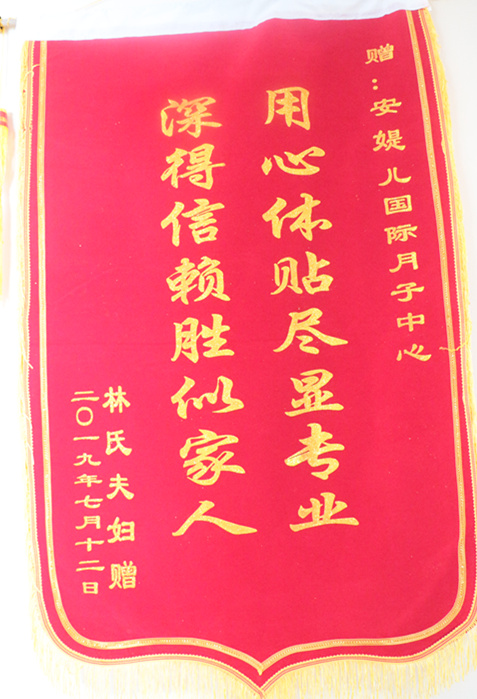 赠：安媞儿国际月子中心
用心体贴尽显专业
深得信赖胜似家人
林氏夫妇赠
二〇一九年七月十二日